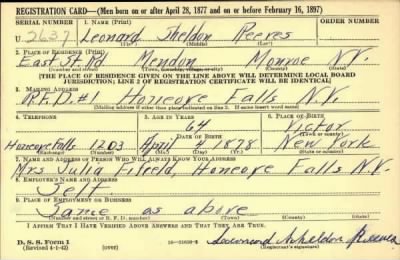 REGISTRATION CARD—(Men born on or after April 28, 1877 and on or before February 16, 1897)
SERIAL NUMBER 1. NAME (Print)
U 2637 Leonard Sheldon Reeves
2. PLACE OF RESIDENCE (Print)
East St Rd Mendon Monroe N.Y.
(Town, township, village, or city) (County) (State)
[THE PLACE OF RESIDENCE GIVEN ON THE LINE ABOVE WILL DETERMINE LOCAL BOARD
JURISDICTION; LINE 2 OF REGISTRATION CERTIFICATE WILL BE IDENTICAL]
3. MAILING ADDRESS
R.F.D. #1 Honeoye Falls N.Y.
[Mailing address if other than place indicated on line 2. If same insert word same]
4. TELEPHONE 5. AGE IN YEARS 6. PLACE OF BIRTH
64 Victor
DATE OF BIRTH (Town or county)
Honeoye Falls 1203 April 4 1878 New York
(Exchange) (Number) (Mo.) (Day) (Yr.) (State or country)
7. NAME AND ADDRESS OF PERSON WHO WILL ALWAYS KNOW YOUR ADDRESS
Mrs Julia Honeoye Falls N.Y.
8. EMPLOYER'S NAME AND ADDRESS
Self
9. PLACE OF EMPLOYMENT OR BUSINESS
Same as above
(Number and street or R. F. D. number) (Town) (County) (State)
I AFFIRM THAT I HAVE VERIFIED ABOVE ANSWERS AND THAT THEY ARE TRUE.
D. S. S. Form 1
(Revised 4-1-42) (over) Leonard Sheldon Reeves
(Registrant's signature)